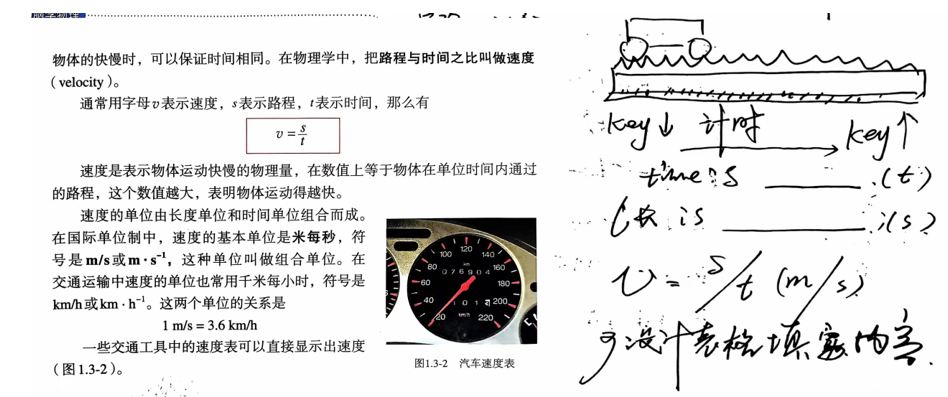 物体的快慢时，可以保证时间相同。在物理学中，把路程与时间之比叫做速度
（velocity）。
通常用字母v表示速度，s表示路程，t表示时间，那么有
v = s/t
速度是表示物体运动快慢的物理量，在数值上等于物体在单位时间内通过
的路程，这个数值越大，表明物体运动得越快。
速度的单位由长度单位和时间单位组合而成。
在国际单位制中，速度的基本单位是米每秒，符
号是 m/s 或 m·s⁻¹，这种单位叫做组合单位。在
交通运输中速度的单位也常用千米每小时，符号是
km/h 或 km·h⁻¹。这两个单位的关系是
1 m/s = 3.6 km/h
一些交通工具中的速度表可以直接显示出速度
（图1.3-2）。
20 40 60 80 100 120 140 160 180 200 220
076904
km/h
图1.3-2 汽车速度表
key↓ 计时 key↑
time: s ____ .(t)
is ____ ;(s)
v = s/t (m/s)
设计表格填写内容.